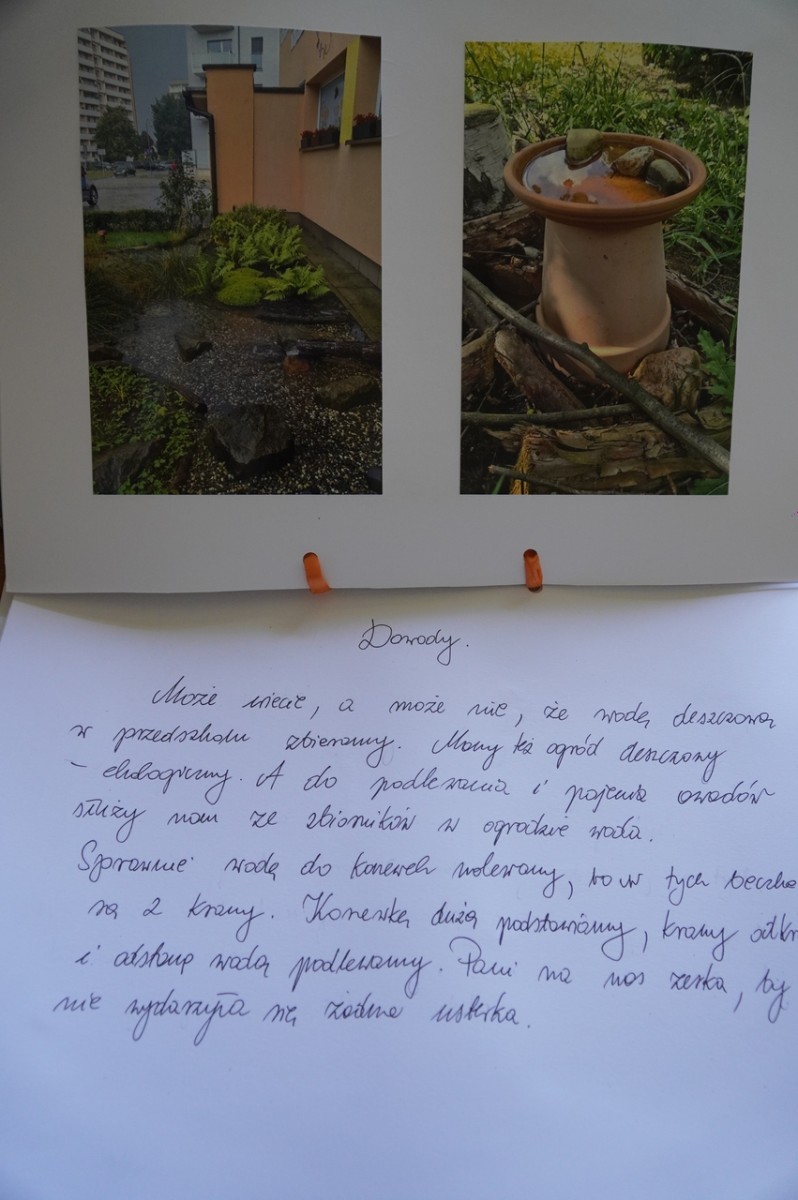 Dowody.
Może wiecie, a może nie, że wodę deszczową
w przedszkolu zbieramy. Mamy też ogród deszczowy
- ekologiczny. A do podlewania i pojenia owadów
służy nam ze zbiorników w ogrodzie woda.
Sprawnie wodę do konewek nalewamy, bo w tych beczka
są 2 krany. Konewkę dużą podstawiamy, krany odkr
i odstaną wodą podlewamy. Pani na nas zerka, by
nie wydarzyła się żadna usterka.